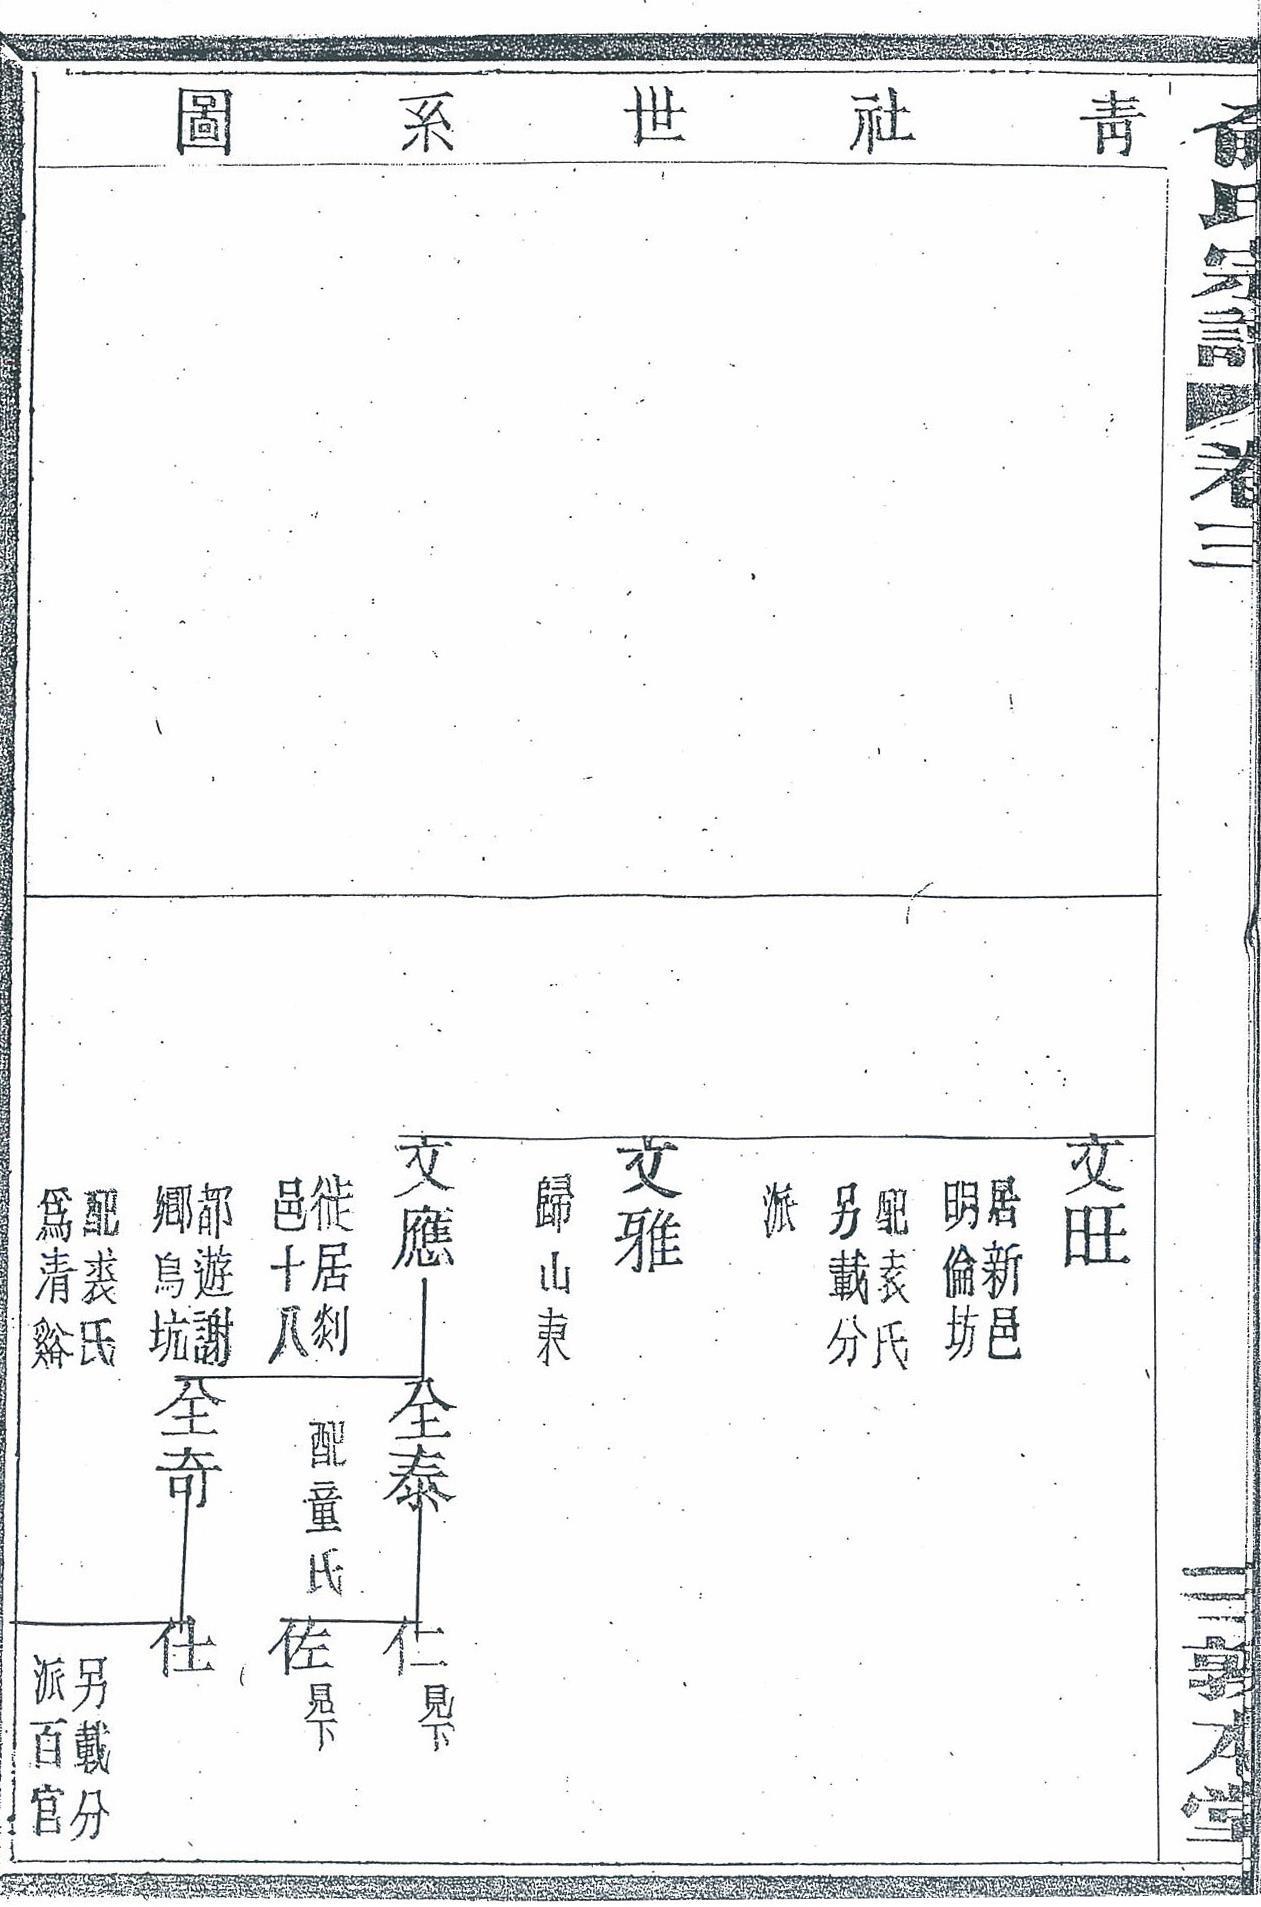 俞氏宗譜
卷三
三敦本堂
青社世系圖
文旺
居新邑
明倫坊
配袁氏
另載分
派
文雅
歸山東
文應
徙居剡
邑十八
都遊謝
鄉烏坑
全泰
配童氏
仁
見下
佐
見下
全奇
配裘氏
為清谿
仕
另載分
派百官